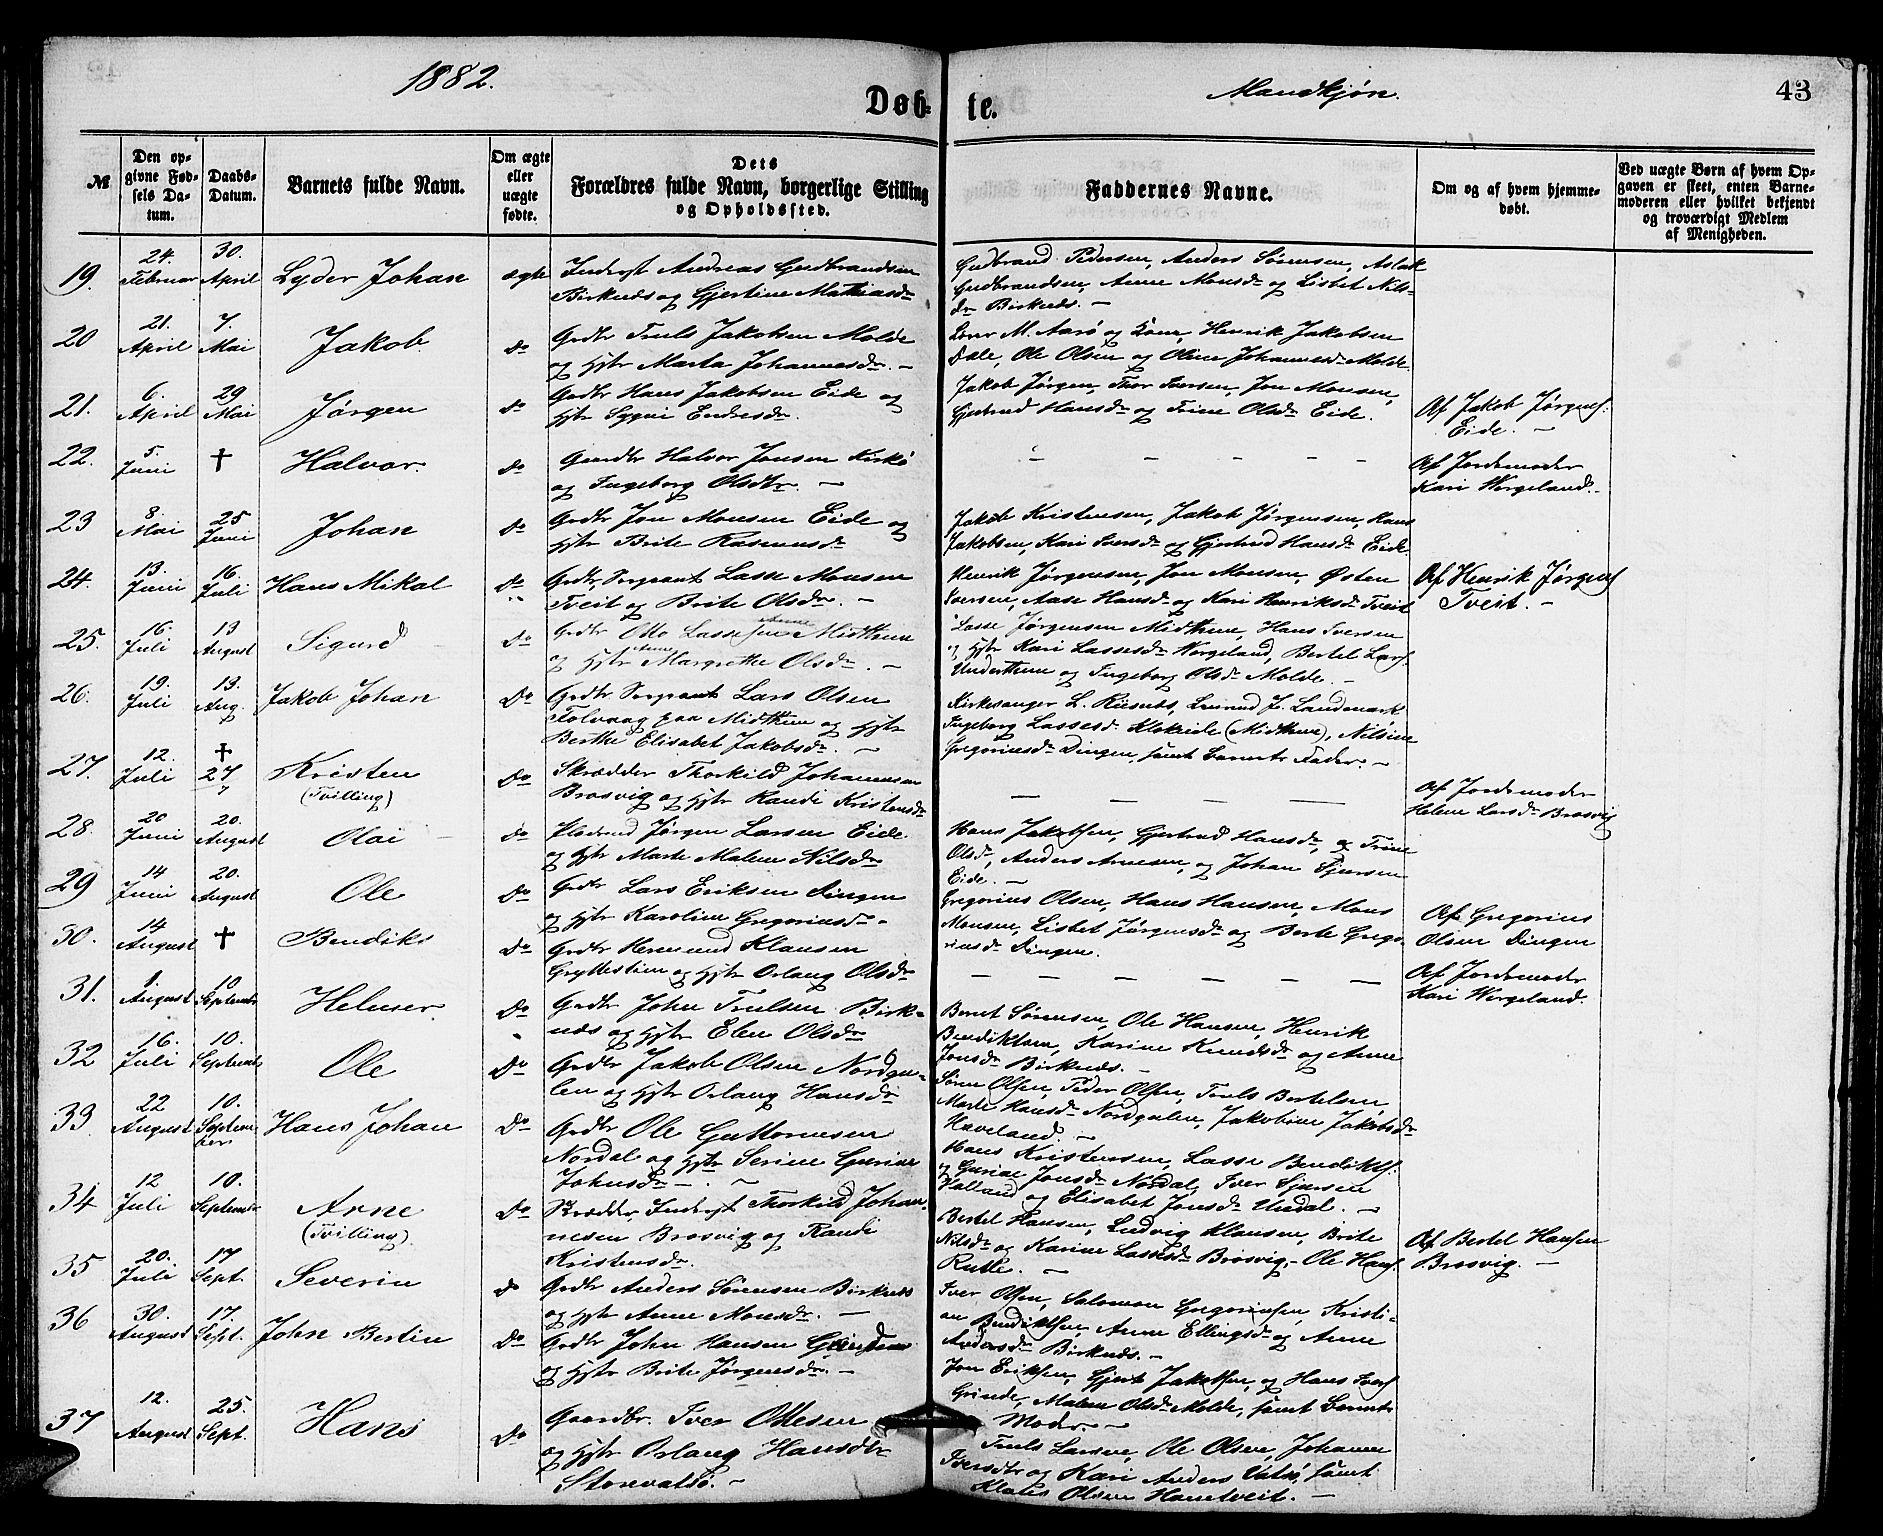 1882.
Døb-
te.
Mandkjøn.
43
№
Den op-
givne Fød-
sels Da-
tum.
Daabs-
Datum.
Barnets fulde Navn.
Om ægte
eller
uægte
fødte.
Dets
Forældres fulde Navn, borgerlige Stilling
og Opholdssted.
Faddernes Navne.
Om og af hvem hjemme-
døbt.
Ved uægte Børn af hvem Op-
gaven er skeet, enten Barne-
moderen eller hvilket bekjendt
og troværdigt Medlem
af Menigheden.
19.
24.
Februar
30.
April
Lyder Johan
ægte
Inderst Andreas Gudbrandsen
Birknes og Gjertine Mathiasdr
Gudbrand Pedersen, Anders Sørensen, Aslak
Gudbrandsen, Anne Monsdr og Lisbet Nils-
dr Birknes. –
20
21.
April
7.
Mai
Jakob
do
Grdbr Truls Jakobsen Molde
og Hstr Marta Johannesdr. –
M. Aarø og Kone, Henrik Jakobsen
Dale, Ole Olsen og Oline Johannesdr Molde.
21.
6.
April
29
Mai
Jørgen
do
Grdbr Hans Jakobsen Eide og
Hstr Sygni Endresdr.
Jakob Jørgen, Thor Iversen, Jon Monsen,
Gjertrud Hansdr og Trine Olsdr Eide.
Af Jakob Jørgens.
Eide. –
22.
5.
Juni
†
Halvor.
do
Gaardbr Halvor Jonsen Kirkø
og Ingeborg Olsdtr. –
– – – – –
Af Jordemoder
Kari Wergeland. –
23
8.
Mai
25
Juni
Johan
do
Grdbr Jon Monsen Eide og
Hstr Brite Rasmusdr
Jakob Kristensen, Jakob Jørgensen, Hans
Jakobsen, Kari Iversdr og Gjertrud Hansdr Eide.
24.
13.
Juni
16.
Juli
Hans Mikal
do
Grdbr, Sergeant Lasse Monsen
Tveit og Brite Olsdr. –
Henrik Jørgensen, Jon Monsen, Østen
Iversen, Aase Hansdr og Kari Henriksdr Tveit
Af Henrik Jørgens
Tveit. –
25.
16.
Juli
13
August
Sigurd
do
Grdbr Otto Lassesen Midthun
og Hstr Anne Margrethe Olsdr. –
Lasse Jørgensen Midthun, Hans Iversen
og Hstr Kari Lassesdr Wergeland, Bertel Lars.
Underthun og Ingeborg Olsdr Molde. –
26.
19.
Juli
13.
Aug.
Jakob Johan
do
Grdbr Sergeant Lars Olsen
Tolvaag paa Midthun og Hstr
Berthe Elisabet Jakobsdr. –
Kirkesanger L. Risnes, J. Landmark
Ingeborg Lassesdr Klokeide (Midthun), Nilsine
Gregoriusdr Dingen, samt Barnets Fader. –
27.
12.
Juli
†
27
7
Kristen
(Tvilling)
do
Skrædder Thorkild Johannesen
Brosvig og Hstr Randi Kristensdr
– – – –
Af Jordemoder
Helene Larsdr Brosvig
28.
20
Juni
20.
August
Olai
do
Pladsmd Jørgen Larsen Eide
og Hstr Marte Malene Nilsdr
Hans Jakobsen, Gjertrud Hansdr, og Trine
Olsdr, Anders Arnesen, og Johan Sjursen
Eide. –
29
14
Juni
20.
August
Ole
do
Grdbr Lars Eriksen Dingen
og Hstr Karoline Gregoriusdr –
Gregorius Olsen, Hans Hansen, Mons
Monsen, Lisbet Jørgensdr og Berte Grego-
riusdr Dingen.
Af Gregorius
Olsen Dingen
30.
14
August
†
Bendiks
do
Grdbr Hermund Klausen
Gryttestien og Hstr Orlaug Olsdr
– – – – – –
Af Jordemoder
Kari Wergeland.
31.
9.
August
10.
September
Helmer
do
Grdbr John Trulsen Birk-
nes og Hstr Elen Olsdr
Bernt Sørensen, Ole Hansen, Henrik
Bendiktsen, Karine Knudsdr og Anne
Jonsdr Birknes. –
32
16.
Juli
10.
September
Ole
do
Grdbr Jakob Olsen Nordgu-
len og Hstr Orlaug Hansdr
Søren Olsen, Peder Olsen, Truls Bertelsen
Marte Hansdr Nordgulen, Jakobine Jakobsdr
Haveland. –
33.
22
August
10.
Septem-
ber
Hans Johan
do
Grdbr Ole Guttormsen
Nordal og Hstr Serine Gurine
Johnsdr – . –
Hans Kristensen, Lasse Bendikts.
og Gurine Jonsdr Nordal, Iver Sjursen
Halland og Elisabet Jonsdr Undal. –
34
12
Juli
10.
September
Arne
(Tvilling)
do
Skrædder, Inderst Thorkild Johan-
nesen Brosvig og Randi
Kristensdr.
Bertel Hansen, Ludvig Klausen, Brite
Nilsdr og Karine Lassesdr Brosvig, – Ole Hans.
Rutle. –
Af Bertel Hansen
Brosvig. –
35
20.
Juli
17
Sept.
Severin
do
Grdbr Anders Sørensen Birknes
og Hstr Anne Monsdr. –
Iver Olsen, Salomon Gregoriusen, Kristi-
an Bendiktsen, Anne Ellingsdr og Anne
Andersdr Birknes. –
36
30.
August
17.
Sept.
John Bertin
do
Grdbr John Hansen
og Hstr Brite Jørgensdr. –
Jon Eriksen, Gjert Jakobsen, og Hans Ivers
Grinde, Malene Olsdr Molde, samt Barnets
Moder. –
37
12.
August
25.
Sept.
Hans
do
Gaardbr. Iver Ottesen
og Hstr Orlaug Hansdtr
Storevatsø. –
Truls Larsen, Ole Olsen, Johanne
Iversdtr og Kari Anders Vatsø, samt
Klaus Olsen Hantveit. –